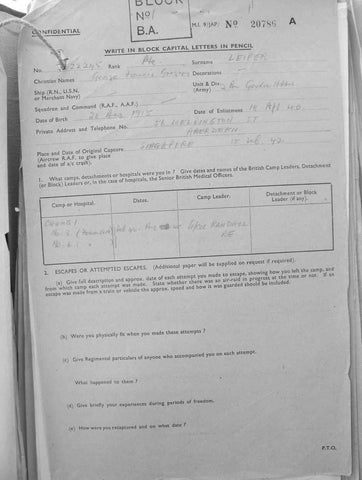 BLOCK
No/
B.A.
CONFIDENTIAL
M.I. 9/JAP/ No 20786 A
WRITE IN BLOCK CAPITAL LETTERS IN PENCIL
No. Rank Pte Surname LEIPER
Christian Names George Decorations
Ship (R.N., U.S.N. or Merchant Navy) Unit & Div (Army) 2nd Gordon
Squadron and Command (R.A.F., A.A.F.)
Date of Birth Date of Enlistment
Private Address and Telephone No. WELLINGTON ST
ABERDEEN
Place and Date of Original Capture SINGAPORE 15 Feb 42
(Aircrew R.A.F. to give place
and date of a/c crash).
1. What camps, detachments or hospitals were you in ? Give dates and names of the British Camp Leaders, Detachment
(or Block) Leaders or, in the case of hospitals, the Senior British Medical Officers.
Camp or Hospital. Dates. Camp Leader. Detachment or Block Leader (if any).
No. 2
RE
2. ESCAPES OR ATTEMPTED ESCAPES. (Additional paper will be supplied on request if required).
(a) Give full description and approx. date of each attempt you made to escape, showing how you left the camp, and
from which camp each attempt was made. State whether there was an air-raid in progress at the time or not. If an
escape was made from a train or vehicle the approx. speed and how it was guarded should be included.
(b) Were you physically fit when you made these attempts ?
(c) Give Regimental particulars of anyone who accompanied you on each attempt.
What happened to them ?
(d) Give briefly your experiences during periods of freedom.
(e) How were you recaptured and on what date ?
P.T.O.